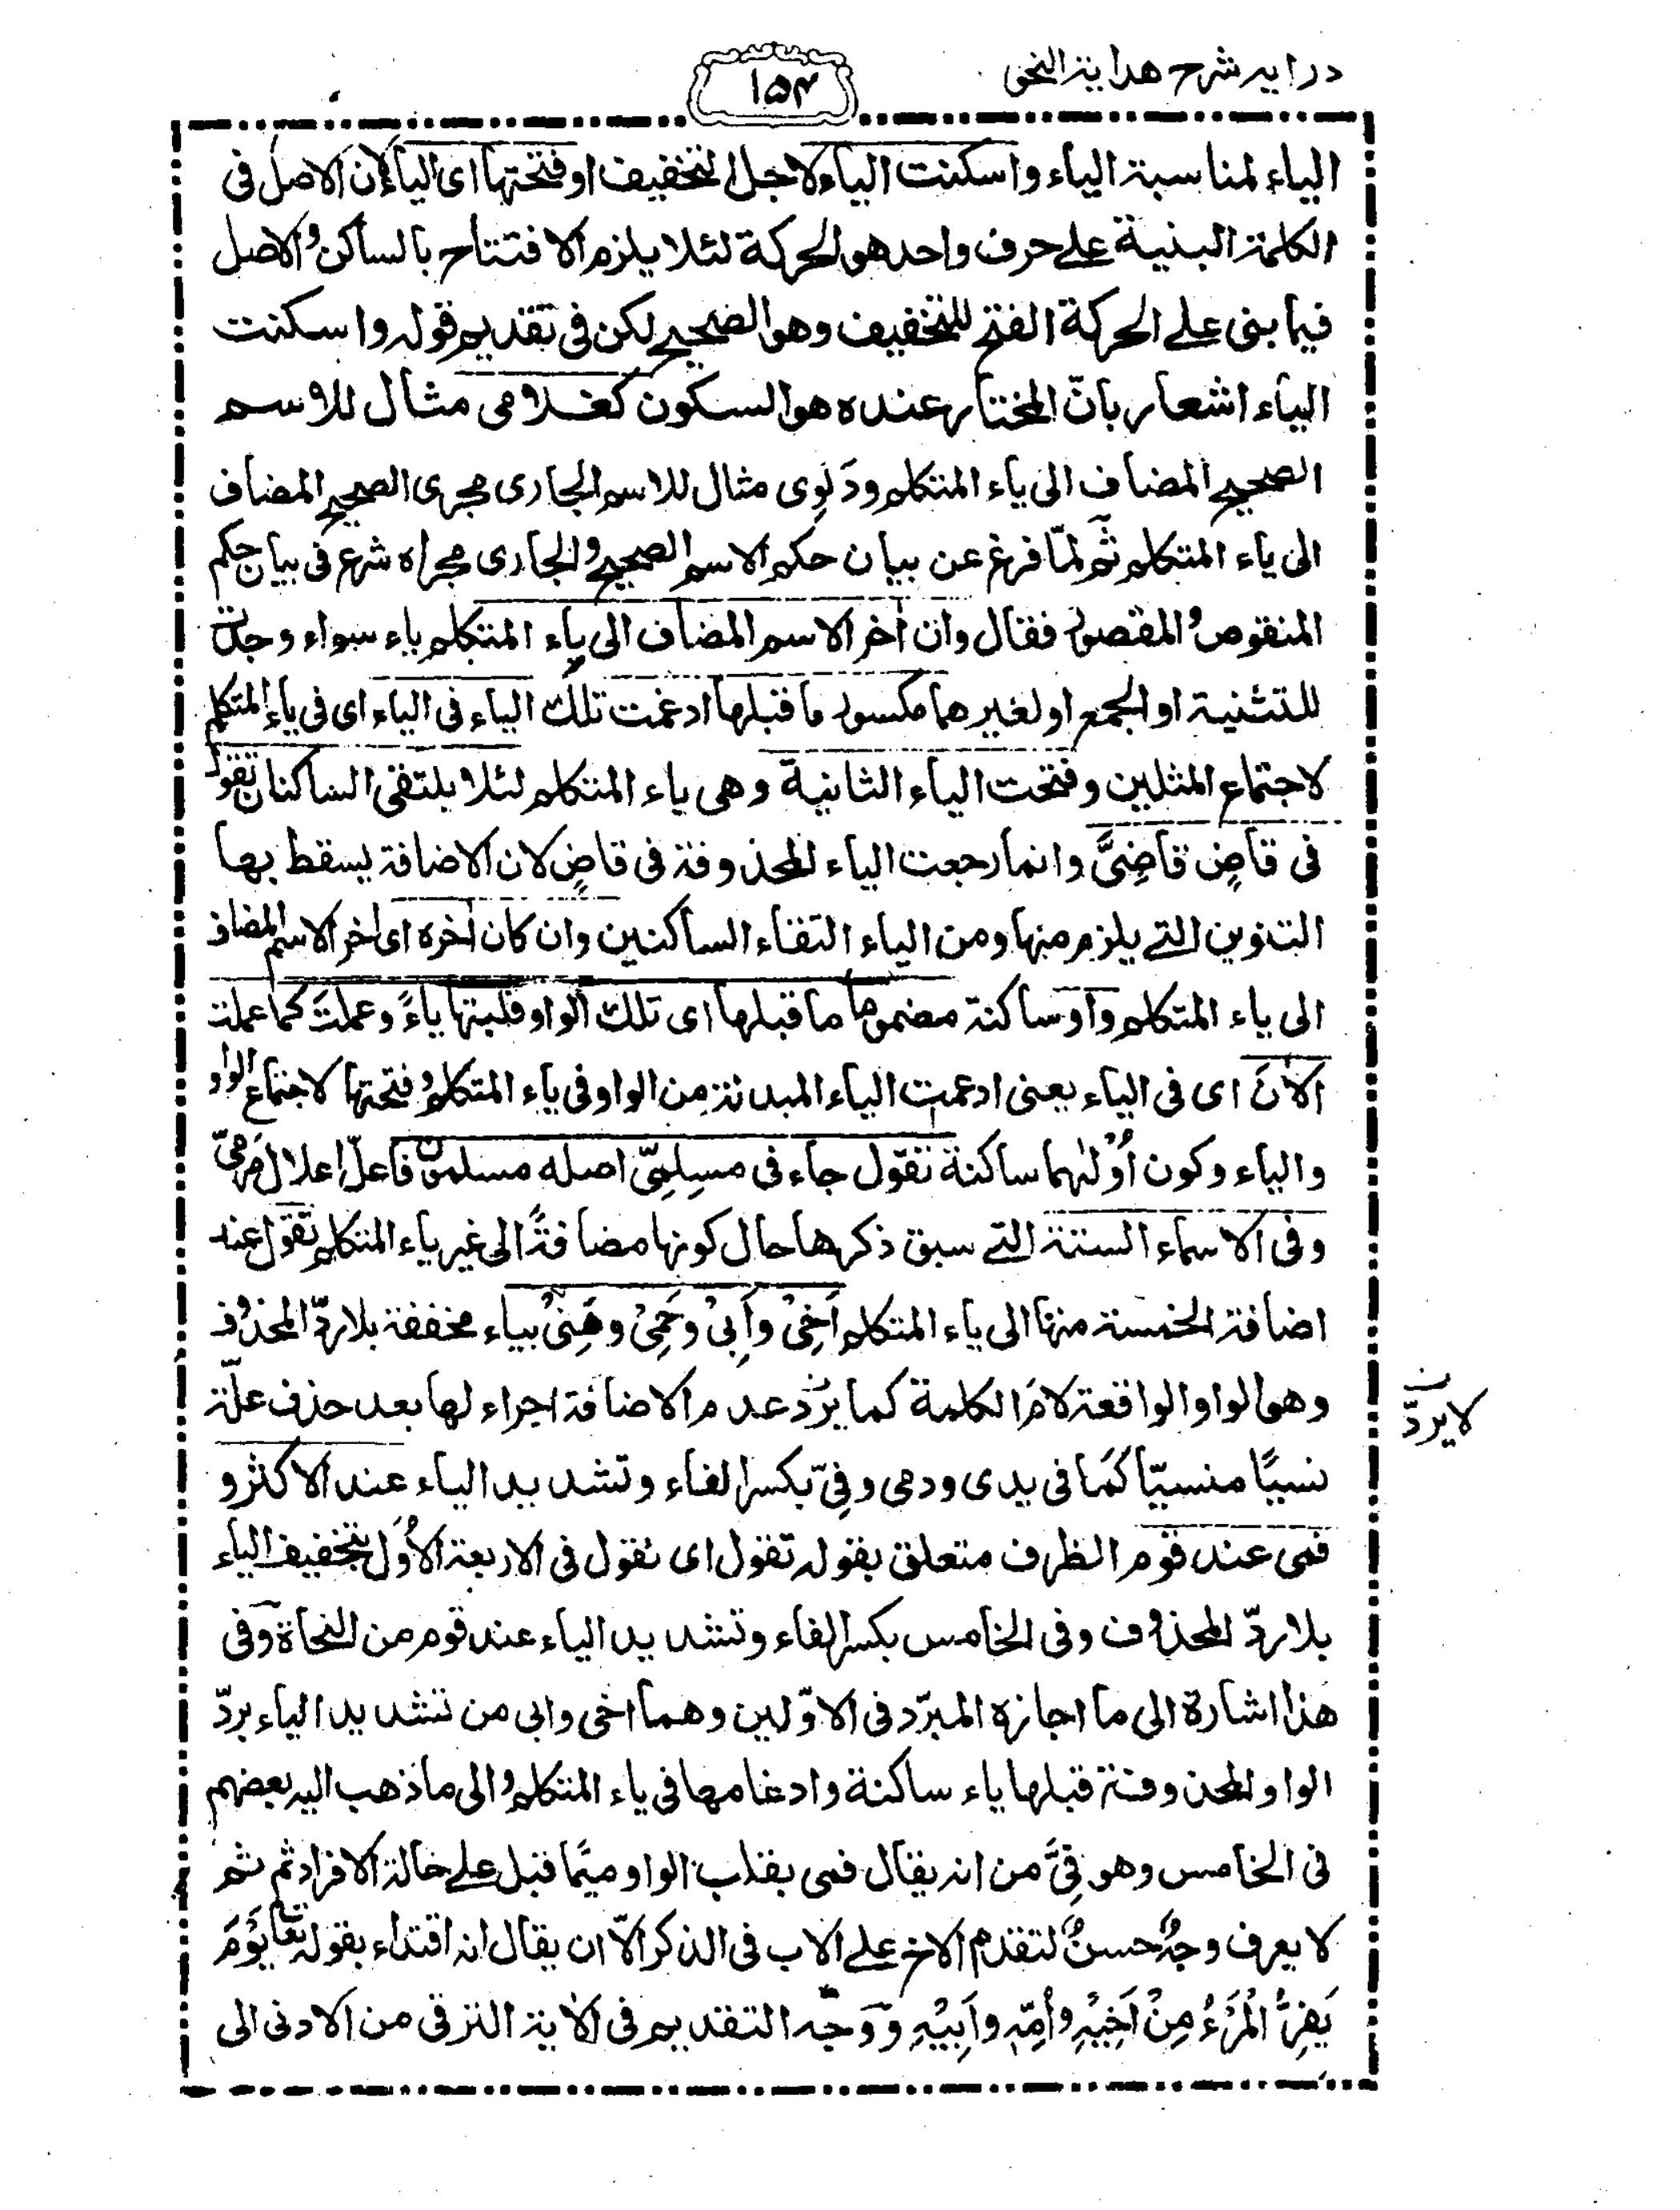 درایہ شرح ھدایۃ النحو
۱۵۴
الیاء لمناسبۃ الیاء واسکنت الیاء لاجل التخفیف او فتحتہا ای الیاء لان الاصل فی
الکلمۃ المبنیۃ علے حرف واحد ھو الحرکۃ لئلا یلزم الافتتاح بالساکن والاصل
فیما بنی علے الحرکۃ الفتح للتخفیف وھو الصحیح لکن فی تقدیم قولہ واسکنت
الیاء اشعار بانّ المختار عندہ ھو السکون کغلامی مثال للاسم
الصحیح المضاف الی یاء المتکلم ودَلْوِی مثال للاسم الجاری مجری الصحیح المضاف
الی یاء المتکلم ثم لمّا فرغ عن بیان حکم الاسم الصحیح والجاری مجراہ شرع فی بیان حکم
المنقوص والمقصور فقال وان اٰخر الاسم المضاف الی یاء المتکلم یاء سواء وجدت
للتثنیۃ او الجمع او لغیرھما مکسور ما قبلہا ادغمت تلک الیاء فی الیاء ای فی یاء المتکلم
لاجتماع المثلین وفتحت الیاء الثانیۃ وھی یاء المتکلم لئلا یلتقی الساکنان تقول
فی قاضٍ قاضِیَّ وانما رجعت الیاء المحذوفۃ فی قاضٍ لان الاضافۃ یسقط بہا
التنوین التے یلزم منہا ومن الیاء التقاء الساکنین وان کان اٰخرہ ای اٰخر الاسم المضاف
الی یاء المتکلم واو ساکنۃ مضموما ما قبلہا ای تلک الواو قلبتہا یاءً وعملتَ کما عملت
الاٰنَ ای فی الیاء یعنی ادغمت الیاء المبدلۃ من الواو فی یاء المتکلم وفتحتہا لاجتماع الواو
والیاء وکون اُوْلٰہما ساکنۃ تقول جاء فی مسلِمِیَّ اصلہ مسلمون فاعلّ اعلال مَرمیّ
وفی الاسماء الستۃ التے سبق ذکرھا حال کونہا مضافۃً الی غیر یاء المتکلم تقول عند
اضافۃ الخمسۃ منہا الی یاء المتکلم اَخِیْ واَبِیْ وحَمِیْ وھَنِیْ بیاء مخففۃ بلا ردّ المحذوف
وھو الواو الواقعۃ لامَ الکلمۃ کما یردّ عدم الاضافۃ اجراء لہا بعد حذف علّۃ
نسیًا منسیّا کما فی یدی ودمی وفِیّ بکسر الفاء وتشدید الیاء عند الاکثر و
فمی عند قوم الظرف متعلق بقولہ تقول ای تقول فی الاربعۃ الاُوَل بتخفیف الیاء
بلا ردّ المحذوف وفی الخامس بکسر الفاء وتشدید الیاء عند قوم من النحاۃ وفی
ھذا اشارۃ الی ما اجازہ المبرّد فی الاوّلین وھما اخی وابی من تشدید الیاء بردّ
الواو المحذوفۃ قبلہا یاء ساکنۃ وادغامہا فی یاء المتکلم والی ما ذھب الیہ بعضہم
فی الخامس وھو فِیَّ من انہ یقال فمی بقلب الواو میمًا قبل علے حالۃ الافراد ثم ثم
لا یعرف وجہٌ حسنٌ لتقدم الاخ علے الاب فی الذکر الّا ان یقال انہ اقتداء بقولہ تعا یَوْمَ
یَفِرُّ الْمَرْءُ مِنْ اَخِیْہِ وَاُمِّہٖ واَبِیْہِ ووجّہ التقدیم فی الاٰیۃ الترقی من الادنی الی
لا یردّ